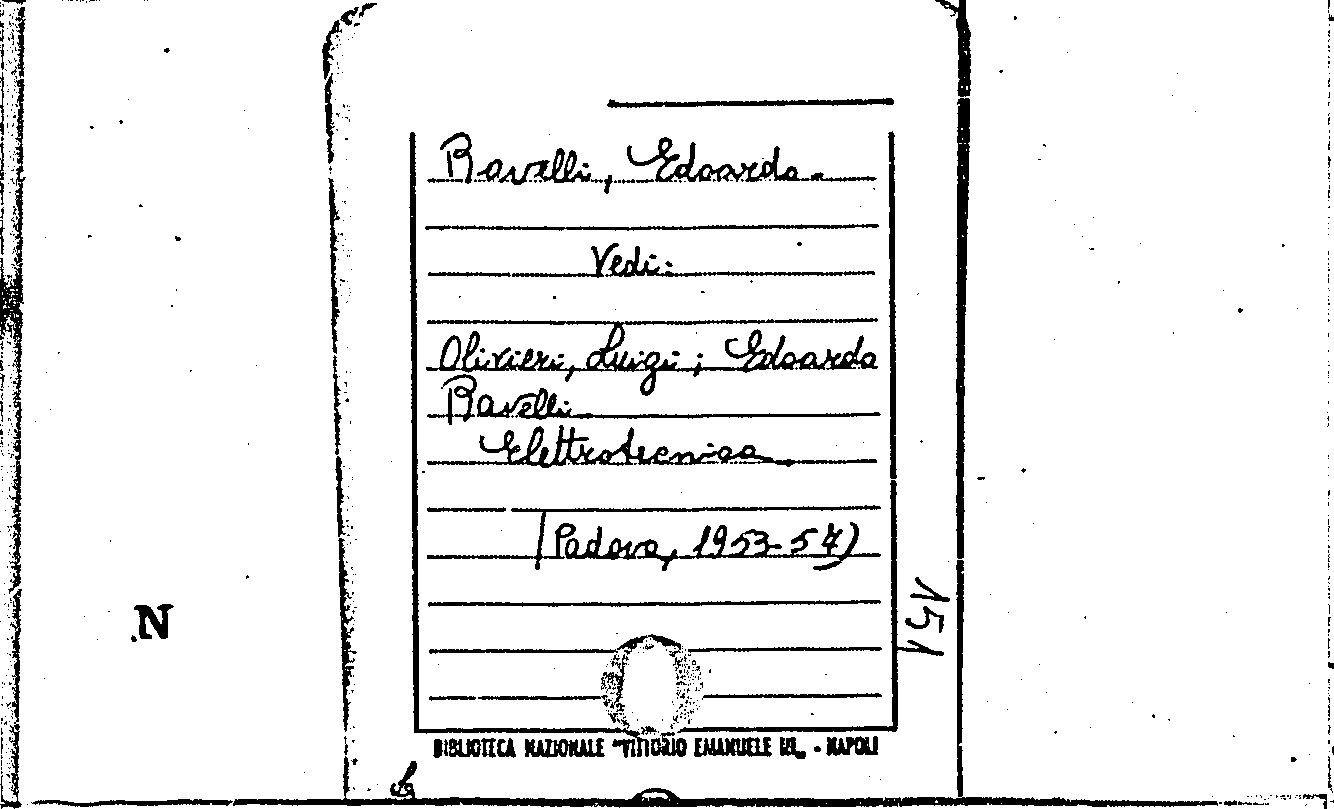 Ravelli, Edoardo.
Vedi:
Olivieri, Luigi; Edoardo
Ravelli
Elettrotecnica.
(Padova, 1953-54)
151
N
BIBLIOTECA NAZIONALE "VITTORIO EMANUELE III„ - NAPOLI